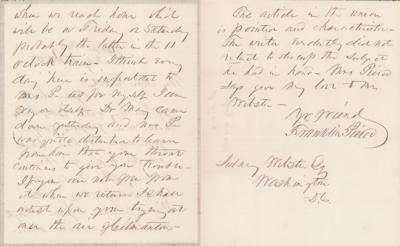 when we reach home which
will be on Friday or Saturday
probably the latter in the 11
o'clock train - I think every
day here is important to
Mrs P. as for myself I am
Dr May came
down yesterday and Mrs P.
was quite disturbed to learn
from him that your throat
continues to give you trouble -
If you are not
when we return I shall
insist upon your trying at
once the air of
The article in the union
is positive and characteristic -
The writer evidently did not
the subject
he had in hand - Mrs Pierce
says give my love to Mr
Webster -
Yr friend
Franklin Pierce
Sidney Webster Esq
Washington
D.C.